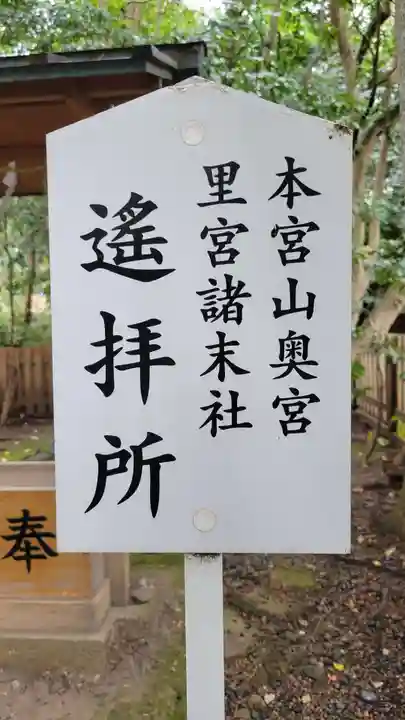 本宮山奥宮
里宮諸末社
遙拝所
奉